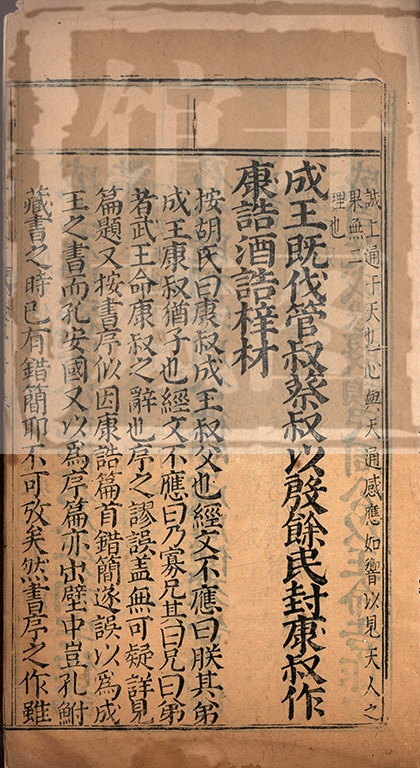 誠上通于天也心與天通感應如響以見天人之
果無二
理也
成王既伐管叔蔡叔以殷餘民封康叔作
康誥酒誥梓材
按胡氏曰康叔成王叔父也經文不應曰朕其弟
成王康叔猶子也經文不應曰乃寡兄其曰兄曰弟
者武王命康叔之辭也序之謬誤蓋無可疑詳見
篇題又按書序似因康誥篇首錯簡遂誤以爲成
王之書而孔安國又以爲序篇亦出壁中豈孔鮒
藏書之時已有錯簡耶不可攷矣然書序之作雖